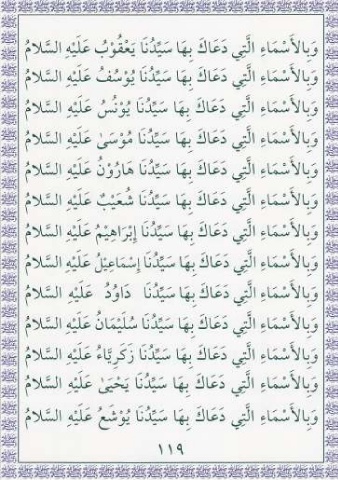 وَبِالأَسْمَاءِ الَّتِي دَعَاكَ بِهَا سَيِّدُنَا يَعْقُوبُ عَلَيْهِ السَّلامُ
وَبِالأَسْمَاءِ الَّتِي دَعَاكَ بِهَا سَيِّدُنَا يُوْسُفُ عَلَيْهِ السَّلامُ
وَبِالأَسْمَاءِ الَّتِي دَعَاكَ بِهَا سَيِّدُنَا يُوْنُسُ عَلَيْهِ السَّلامُ
وَبِالأَسْمَاءِ الَّتِي دَعَاكَ بِهَا سَيِّدُنَا مُوْسَىٰ عَلَيْهِ السَّلامُ
وَبِالأَسْمَاءِ الَّتِي دَعَاكَ بِهَا سَيِّدُنَا هَارُوْنُ عَلَيْهِ السَّلامُ
وَبِالأَسْمَاءِ الَّتِي دَعَاكَ بِهَا سَيِّدُنَا شُعَيْبٌ عَلَيْهِ السَّلامُ
وَبِالأَسْمَاءِ الَّتِي دَعَاكَ بِهَا سَيِّدُنَا إِبْرَاهِيْمُ عَلَيْهِ السَّلامُ
وَبِالأَسْمَاءِ الَّتِي دَعَاكَ بِهَا سَيِّدُنَا إِسْمَاعِيْلُ عَلَيْهِ السَّلامُ
وَبِالأَسْمَاءِ الَّتِي دَعَاكَ بِهَا سَيِّدُنَا دَاوُدُ عَلَيْهِ السَّلامُ
وَبِالأَسْمَاءِ الَّتِي دَعَاكَ بِهَا سَيِّدُنَا سُلَيْمَانُ عَلَيْهِ السَّلامُ
وَبِالأَسْمَاءِ الَّتِي دَعَاكَ بِهَا سَيِّدُنَا زَكَرِيَّاءُ عَلَيْهِ السَّلامُ
وَبِالأَسْمَاءِ الَّتِي دَعَاكَ بِهَا سَيِّدُنَا يَحْيَىٰ عَلَيْهِ السَّلامُ
وَبِالأَسْمَاءِ الَّتِي دَعَاكَ بِهَا سَيِّدُنَا يُوْشَعُ عَلَيْهِ السَّلامُ
١١٩